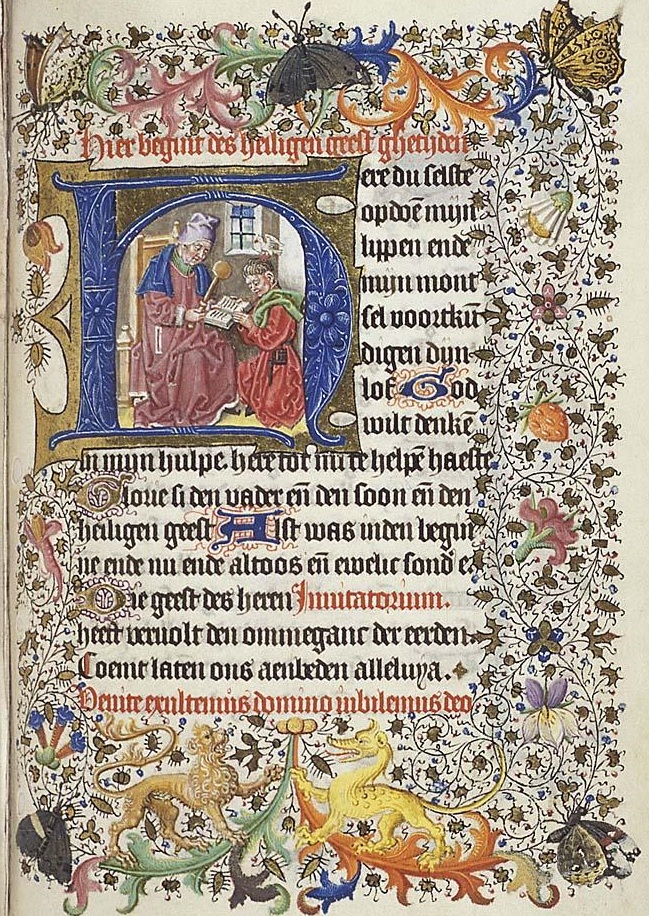 Hier begint des heiligen geest ghetijden
ere du selste
opdoē mijn
lippen ende
mijn mont
sel voortkū
digen dijn
lof God
wilt denkē
in mijn hulpe. here tot mi te helpē haeste
Glorie si den vader eñ den soon eñ den
heiligen geest Alst was inden begin
ne ende nu ende altoos eñ ewelic sond e.
Die geest des heren Inuitatorium.
heeft veruolt den ommeganc der eerden.
Coemt laten ons aenbeden alleluya.
Venite exultemus domino iubilemus deo